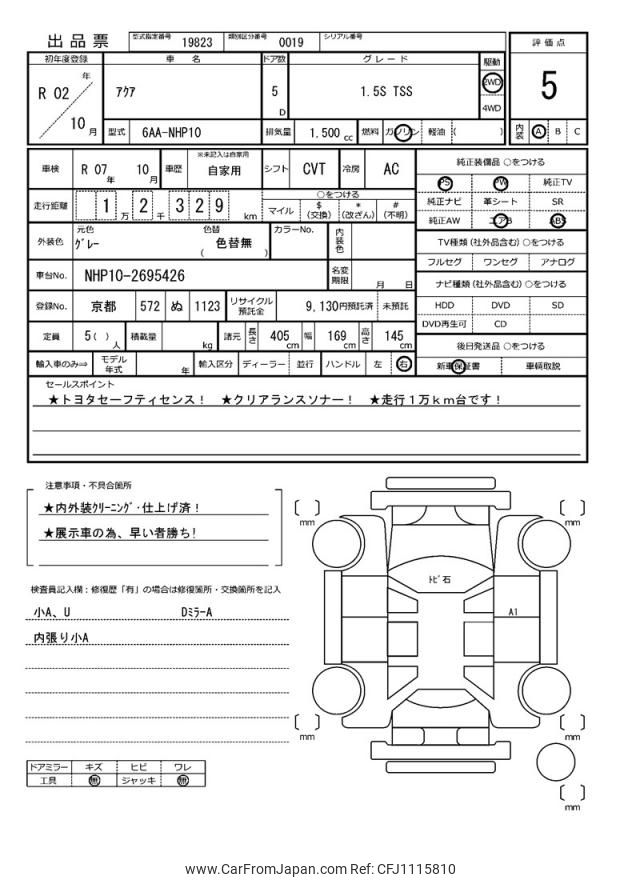 出品票 型式指定番号 19823 類別区分番号 0019 シリアル番号
評価点
5
内装 A B C
初年度登録 車名 ドア数 グレード 駆動
R 02 年 10 月 ｱｸｱ 5 D 1.5S TSS 2WD
4WD
型式 6AA-NHP10 排気量 1.500 cc 燃料 ガソリン 軽油 ( )
車検 R 07 年 10 月 車歴 ※未記入は自家用 自家用 シフト CVT 冷房 AC
走行距離 1 万 2 千 3 2 9 km ○をつける
マイル $ (交換) * (改ざん) # (不明)
外装色 元色 ｸﾞﾚｰ 色替 ( 色替無 ) カラーNo. 内装色
車台No. NHP10-2695426 名変期限 月 日
登録No. 京都 572 ぬ 1123 リサイクル預託金 9,130円預託済 未預託
定員 5 ( ) 人 積載量 kg 諸元 長さ 405 cm 幅 169 cm 高さ 145 cm
輸入車のみ⇒ モデル年式 年 輸入区分 ディーラー 並行 ハンドル 左 右
純正装備品 ○をつける
PS PW 純正TV
純正ナビ 革シート SR
純正AW エアB ABS
TV種類 (社外品含む) ○をつける
フルセグ ワンセグ アナログ
ナビ種類 (社外品含む) ○をつける
HDD DVD SD
DVD再生可 CD
後日発送品 ○をつける
新車保証書 車輌取説
セールスポイント
★トヨタセーフティセンス！ ★クリアランスソナー！ ★走行１万ｋｍ台です！
注意事項・不具合箇所
★内外装ｸﾘｰﾆﾝｸﾞ・仕上げ済！
★展示車の為、早い者勝ち!
検査員記入欄：修復歴「有」の場合は修復箇所・交換箇所を記入
小A、U DﾐﾗｰA
内張り小A
ﾄﾋﾞ石
A1
mm
mm
mm
mm
mm
ドアミラー キズ ヒビ ワレ
工具 無 ジャッキ 無
www.CarFromJapan.com Ref: CFJ1115810